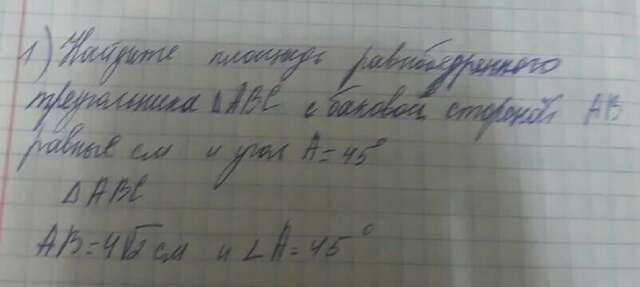 1) Найдите площадь равнобедренного
треугольника ΔABC с баковой стороной AB
равные см и угол A=45°
ΔABC
AB=4√2 см и ∠A=45°